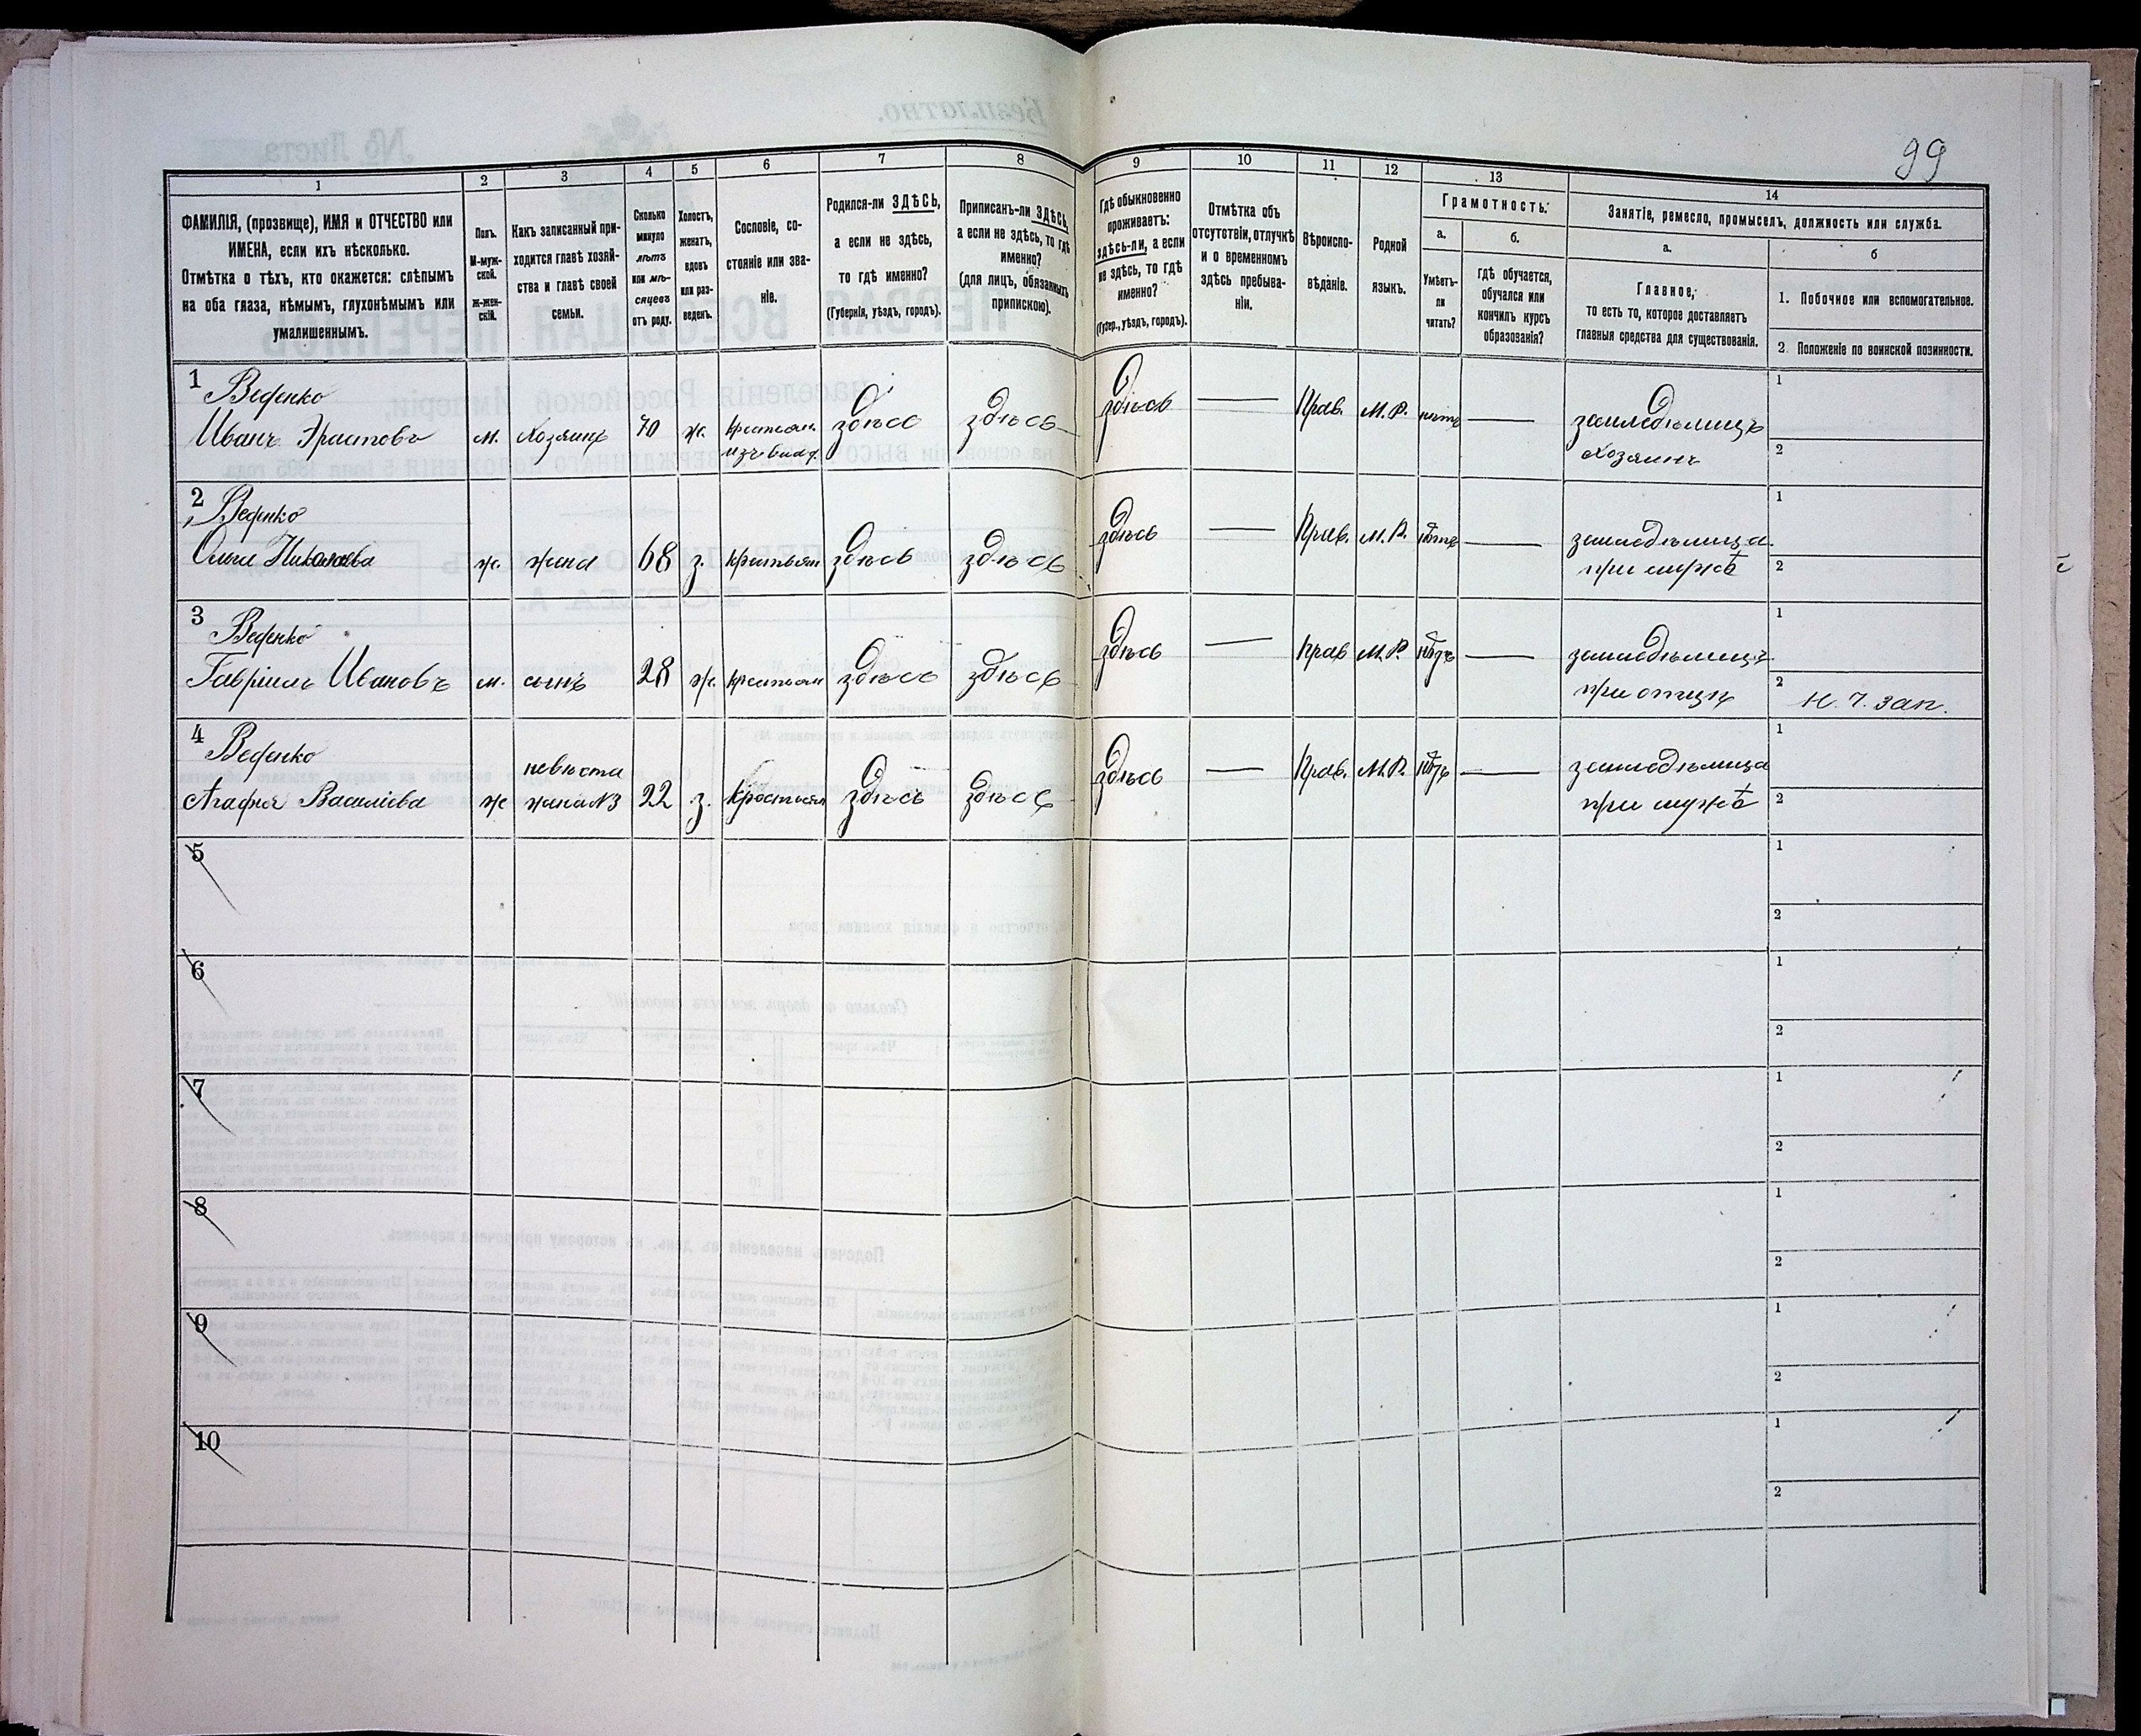 99
1
2
3
4
5
6
7
8
9
10
11
12
13
14
ФАМИЛІЯ, (прозвище), ИМЯ и ОТЧЕСТВО или
ИМЕНА, если ихъ нѣсколько.
Отмѣтка о тѣхъ, кто окажется: слѣпымъ
на оба глаза, нѣмымъ, глухонѣмымъ или
умалишеннымъ.
Полъ.
М-муж-
ской.
Ж-жен-
скій.
Какъ записанный при-
ходится главѣ хозяй-
ства и главѣ своей
семьи.
Сколько
минуло
лѣтъ
или мѣ-
сяцевъ
отъ роду.
Холостъ,
женатъ,
вдовъ
или раз-
веденъ.
Сословіе, со-
стояніе или зва-
ніе.
Родился-ли ЗДѢСЬ,
а если не здѣсь,
то гдѣ именно?
(Губернія, уѣздъ, городъ).
Приписанъ-ли ЗДѢСЬ,
а если не здѣсь, то гдѣ
именно?
(для лицъ, обязанныхъ
припискою).
Гдѣ обыкновенно
проживаетъ:
здѣсь-ли, а если
не здѣсь, то гдѣ
именно?
(Губер., уѣздъ, городъ).
Отмѣтка объ
отсутствіи, отлучкѣ
и о временномъ
здѣсь пребыва-
ніи.
Вѣроиспо-
вѣданіе.
Родной
языкъ.
Грамотность.
а.
Умѣетъ-
ли
читать?
б.
гдѣ обучается,
обучался или
кончилъ курсъ
образованія?
Занятіе, ремесло, промыселъ, должность или служба.
а.
Главное,
то есть то, которое доставляетъ
главныя средства для существованія.
б
1. Побочное или вспомогательное.
2. Положеніе по воинской повинности.
1 Веденко
Иванъ м. хозяинъ 70 ж. здѣсь здѣсь здѣсь — Прав. М.Р. нѣтъ — земледѣлецъ
хозяинъ
1
2
2 Веденко
Ольга Николаева ж. жена 68 з. крестьян здѣсь здѣсь здѣсь — Прав. М.Р. нѣтъ — земледѣлица
при мужѣ
1
2
3 Веденко
Гавріилъ Ивановъ м. сынъ 28 ж. крестьян здѣсь здѣсь здѣсь — Прав М.Р. — земледѣлецъ
при отцѣ
1
2 н. ч. зап.
4 Веденко
невѣста
Агафья Василіева ж жена №3 22 з. крестьян здѣсь здѣсь здѣсь — Прав. М.Р. — земледѣлица
при мужѣ
1
2
5
1
2
6
1
2
7
1
2
8
1
2
9
1
2
10
1
2